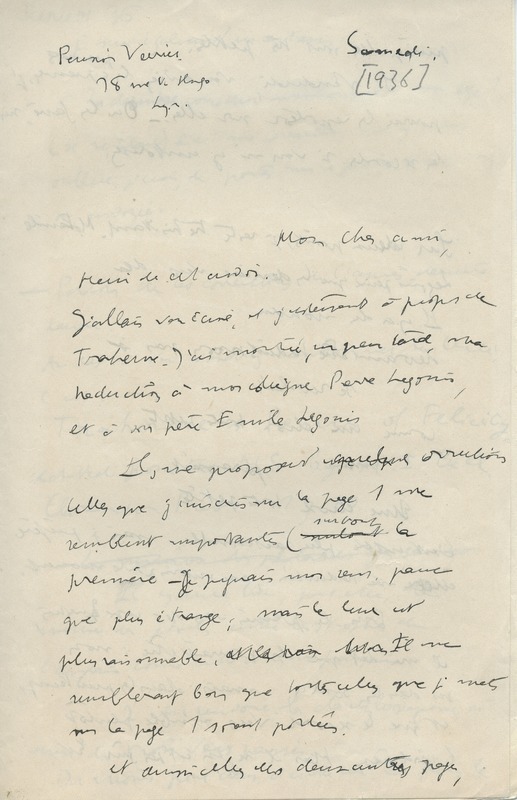 78 rue V. Hugo
Samedi.
[1936]
Mon cher ami,
Merci de
J'allais vous écrire, et justement à propos de
Traherne. J'ai montré, un peu tard, ma
traduction à mon collègue Pierre Legouis,
et à son père Emile Legouis
Ils me proposent quelques corrections
Celles que j'inscris sur la page 1 me
semblent importantes (surtout la
première – Je préférais mon sens, parce
que plus étrange; mais le leur est
plus raisonnable, Il me
semblerait bon que toutes celles que je mets
sur la page 1 soient portées.
et aussi celles des deux autres pages,